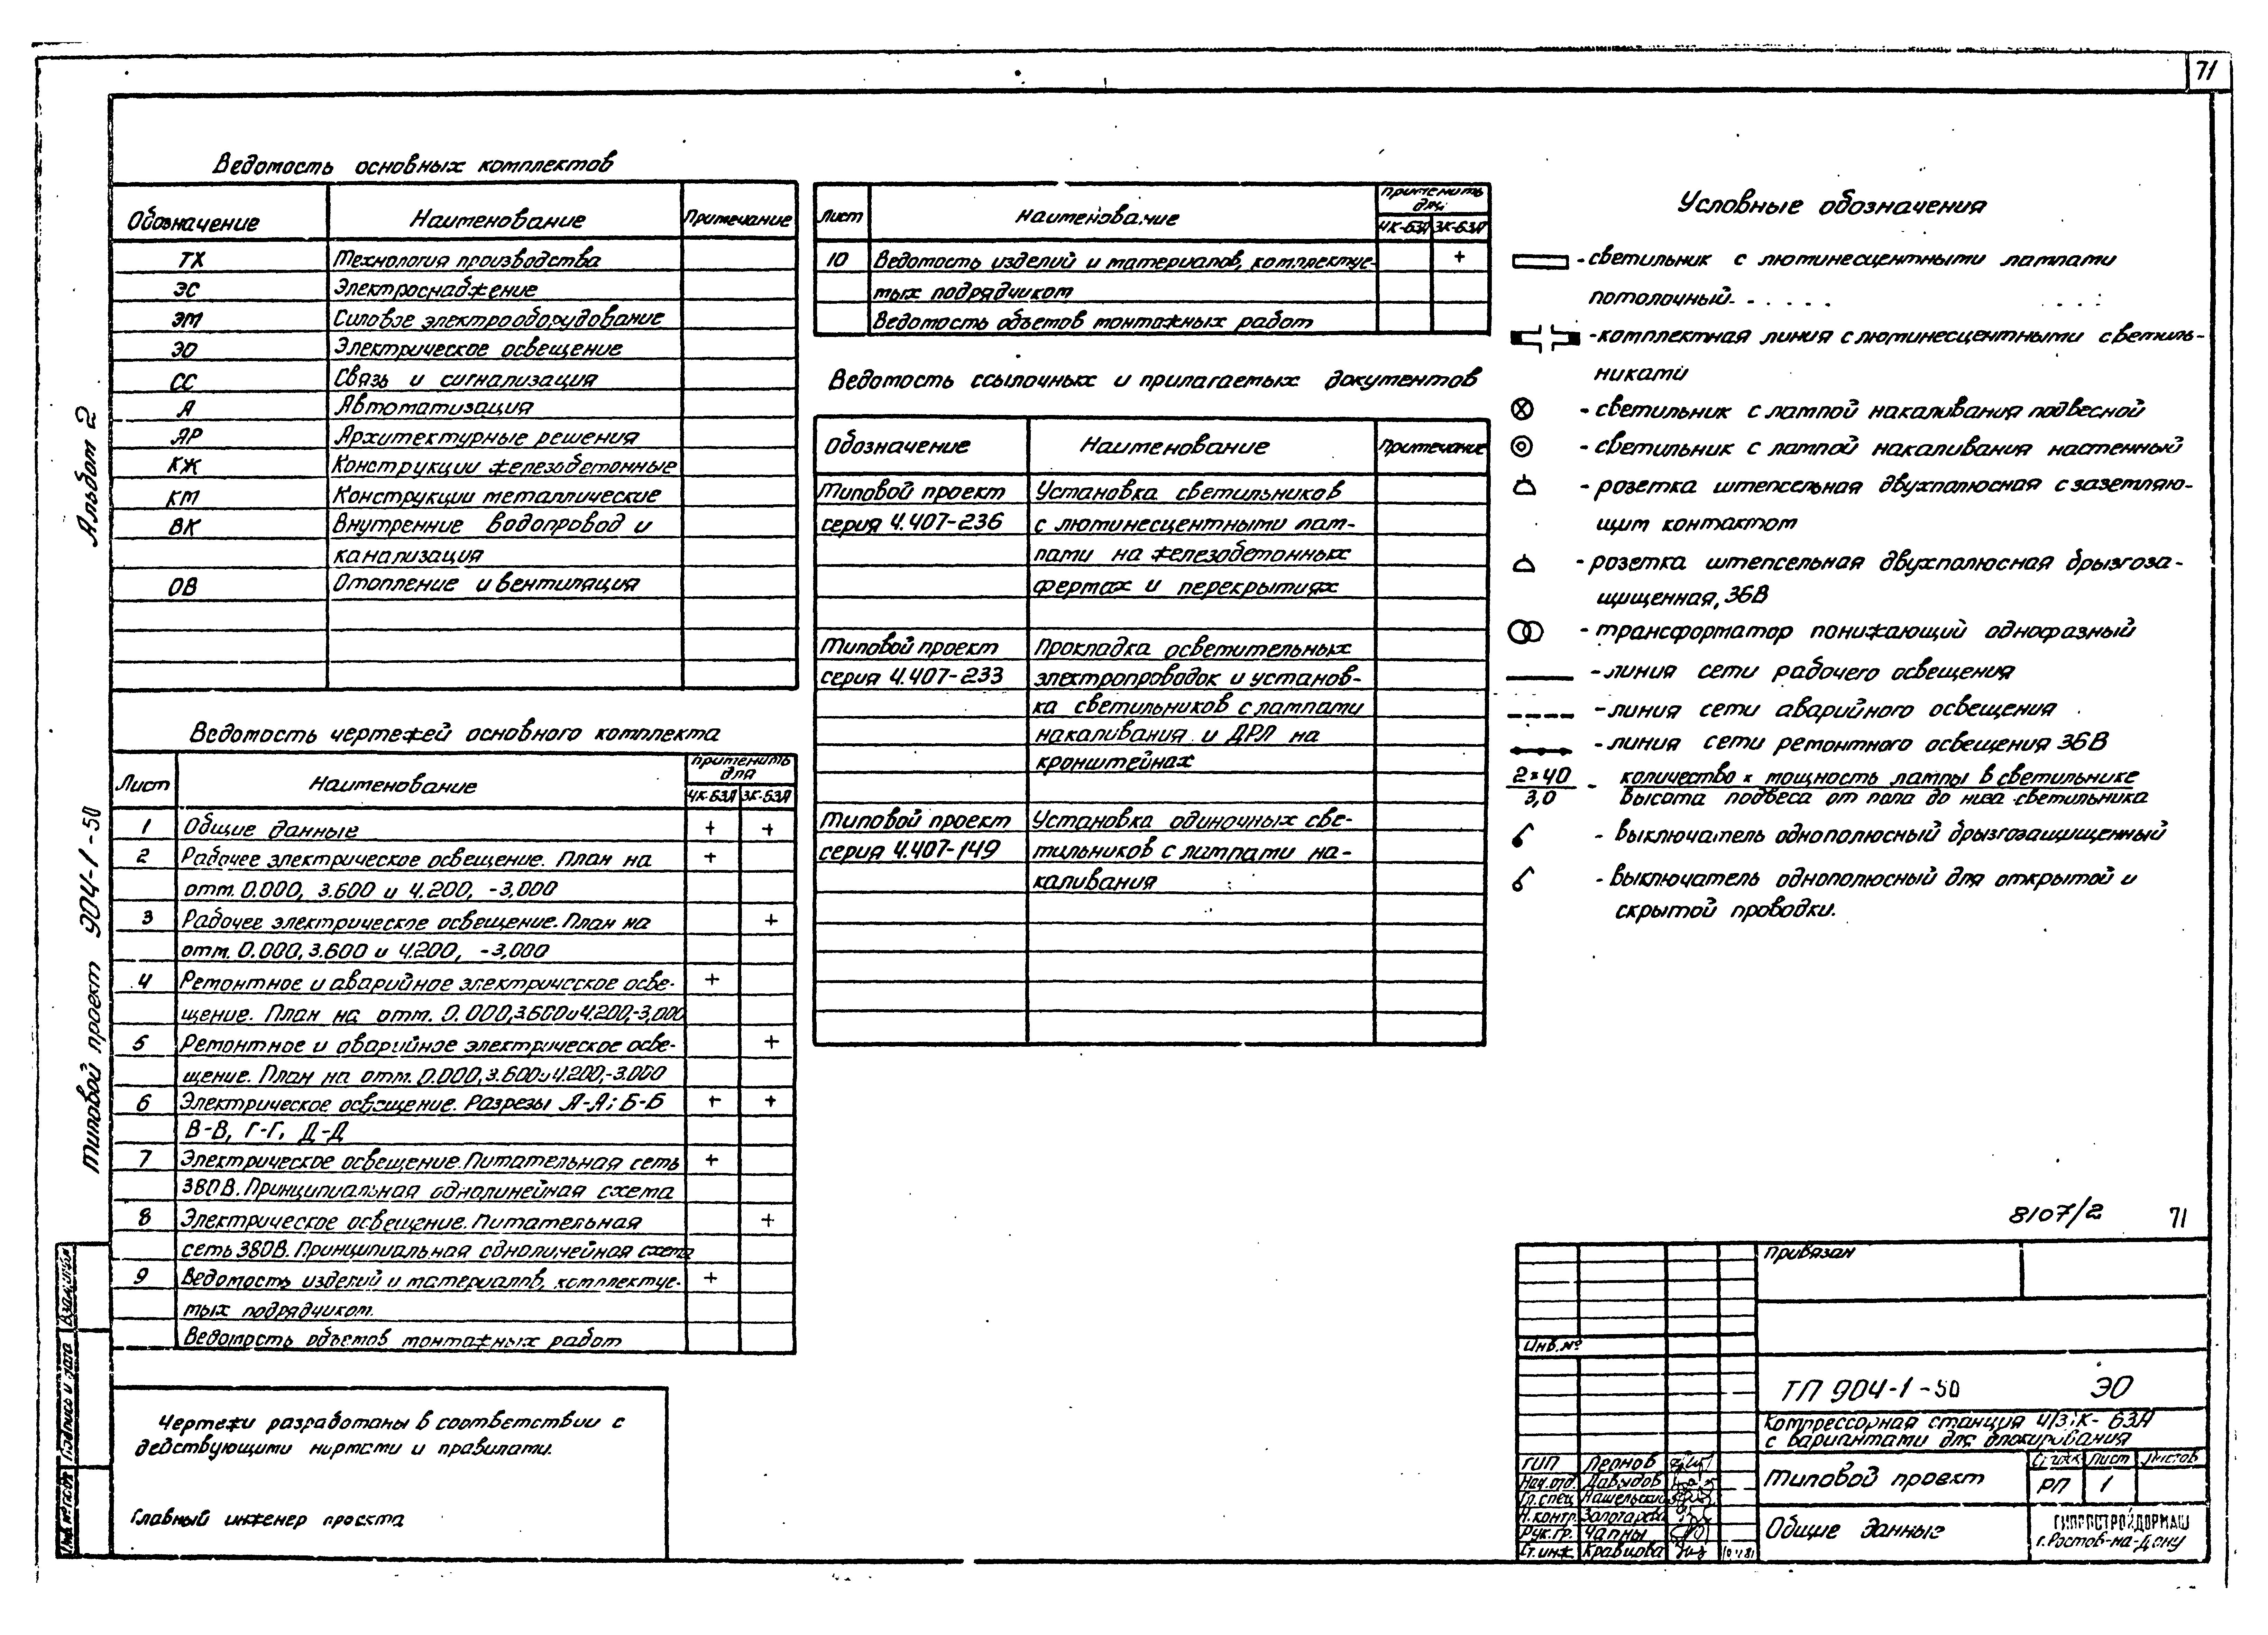 71
Альбом 2
Типовой проект 904-1-50
Ведомость основных комплектов
Обозначение Наименование Примечание
ТХ Технология производства
ЭС Электроснабжение
ЭМ Силовое электрооборудование
ЭО Электрическое освещение
СС Связь и сигнализация
А Автоматизация
АР Архитектурные решения
КЖ Конструкции железобетонные
КМ Конструкции металлические
ВК Внутренние водопровод и
канализация
ОВ Отопление и вентиляция
Ведомость чертежей основного комплекта
Лист Наименование Применить для
4К-63А 3К-63А
1 Общие данные + +
2 Рабочее электрическое освещение. План на +
отм. 0.000, 3.600 и 4.200, -3,000
3 Рабочее электрическое освещение. План на +
отм. 0.000, 3.600 и 4.200, -3,000
4 Ремонтное и аварийное электрическое осве- +
щение. План на отм. 0.000, 3.600 и 4.200, -3,000
5 Ремонтное и аварийное электрическое осве- +
щение. План на отм. 0.000, 3.600 и 4.200, -3.000
6 Электрическое освещение. Разрезы А-А; Б-Б + +
В-В, Г-Г, Д-Д
7 Электрическое освещение. Питательная сеть +
380В. Принципиальная однолинейная схема
8 Электрическое освещение. Питательная +
сеть 380В. Принципиальная однолинейная схема
9 Ведомость изделий и материалов, комплектуе- +
мых подрядчиком.
Ведомость объемов монтажных работ
Чертежи разработаны в соответствии с
действующими нормами и правилами.
Главный инженер проекта
Лист Наименование Применить для
4К-63А 3К-63А
10 Ведомость изделий и материалов, комплектуе- +
мых подрядчиком
Ведомость объемов монтажных работ
Ведомость ссылочных и прилагаемых документов
Обозначение Наименование Примечание
Типовой проект Установка светильников
серия 4.407-236 с люминесцентными лам-
пами на железобетонных
фермах и перекрытиях
Типовой проект Прокладка осветительных
серия 4.407-233 электропроводок и установ-
ка светильников с лампами
накаливания и ДРЛ на
кронштейнах
Типовой проект Установка одиночных све-
серия 4.407-149 тильников с лампами на-
каливания
Условные обозначения
- светильник с люминесцентными лампами
потолочный
- комплектная линия с люминесцентными светиль-
никами
- светильник с лампой накаливания подвесной
- светильник с лампой накаливания настенный
- розетка штепсельная двухполюсная с заземляю-
щим контактом
- розетка штепсельная двухполюсная брызгоза-
щищенная, 36В
- трансформатор понижающий однофазный
- линия сети рабочего освещения
- линия сети аварийного освещения
- линия сети ремонтного освещения 36В
2×40 - количество × мощность лампы в светильнике
3,0 высота подвеса от пола до низа светильника
- выключатель однополюсный брызгозащищенный
- выключатель однополюсный для открытой и
скрытой проводки.
8107/2 71
Привязан
Инв. №
ТП 904-1-50 ЭО
Компрессорная станция 4/3/К-63А
с вариантами для блокирования
ГИП Леонов
Нач.отд. Давыдов
Гл.спец. Нашельский
Н.контр. Золотарева
Рук.гр. Чапны
Ст.инж. Кравцова
Типовой проект
Лист Листов
РП 1
Общие данные
ГИПРОСТРОЙДОРМАШ
г. Ростов-на-Дону
Взам.инв.№
Подпись и дата
Инв.№ подл.